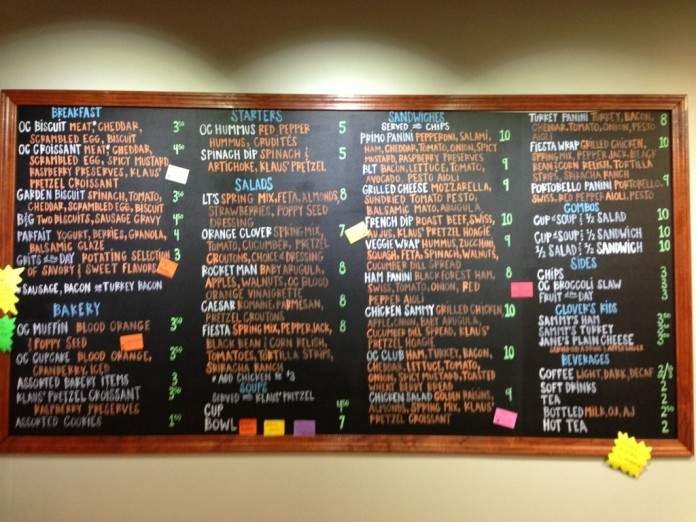 BREAKFAST
OG BISCUIT MEAT,* CHEDDAR, 3⁵⁰
SCRAMBLED EGG, BISCUIT
OG CROISSANT MEAT,* CHEDDAR, 4⁵⁰
SCRAMBLED EGG, SPICY MUSTARD
RASPBERRY PRESERVES, KLAUS'
PRETZEL CROISSANT
GARDEN BISCUIT SPINACH, TOMATO, 3⁵⁰
CHEDDAR, SCRAMBLED EGG, BISCUIT
B&G TWO BISCUITS, SAUSAGE GRAVY 4⁵⁰
PARFAIT YOGURT, BERRIES, GRANOLA, 4
BALSAMIC GLAZE
GRITS OF THE DAY ROTATING SELECTION 3
OF SAVORY & SWEET FLAVORS
*SAUSAGE, BACON OR TURKEY BACON
BAKERY
OG MUFFIN BLOOD ORANGE 3⁵⁰
& POPPY SEED
OG CUPCAKE BLOOD ORANGE, 3⁵⁰
CRANBERRY, ICED
ASSORTED BAKERY ITEMS 3
KLAUS' PRETZEL CROISSANT 3⁵⁰
RASPBERRY PRESERVES
ASSORTED COOKIES 1⁵⁰
STARTERS
OG HUMMUS RED PEPPER 5
HUMMUS, CRUDITÉS
SPINACH DIP SPINACH & 5
ARTICHOKE, KLAUS' PRETZEL
SALADS
LT'S SPRING MIX, FETA, ALMONDS, 8
STRAWBERRIES, POPPY SEED
DRESSING
ORANGE CLOVER SPRING MIX, 7
TOMATO, CUCUMBER, PRETZEL
CROUTONS, CHOICE OF DRESSING
ROCKET MAN BABY ARUGULA, 8
APPLES, WALNUTS, OG BLOOD
ORANGE VINAIGRETTE
CAESAR ROMAINE, PARMESAN, 8
PRETZEL CROUTONS
FIESTA SPRING MIX, PEPPER JACK, 8
BLACK BEAN & CORN RELISH,
TOMATOES, TORTILLA STRIPS,
SRIRACHA RANCH
* ADD CHICKEN $3
SOUPS
SERVED WITH KLAUS' PRETZEL
CUP 4⁵⁰
BOWL 7
SANDWICHES
SERVED WITH CHIPS
PRIMO PANINI PEPPERONI, SALAMI, 10
HAM, CHEDDAR, TOMATO, ONION, SPICY
MUSTARD, RASPBERRY PRESERVES
BLT BACON, LETTUCE, TOMATO, 9
AVOCADO, PESTO AIOLI
GRILLED CHEESE MOZZARELLA, 9
SUNDRIED TOMATO PESTO,
BALSAMIC MAYO, ARUGULA
FRENCH DIP ROAST BEEF, SWISS, 10
KLAUS' PRETZEL HOAGIE
VEGGIE WRAP HUMMUS, ZUCCHINI, 9
SQUASH, FETA, SPINACH, WALNUTS,
CUCUMBER DILL SPREAD
HAM PANINI BLACK FOREST HAM, 8
SWISS, TOMATO, ONION, RED
PEPPER AIOLI
CHICKEN SAMMY GRILLED CHICKEN, 10
APPLE, ONION, BABY ARUGULA,
CUCUMBER DILL SPREAD, KLAUS'
PRETZEL HOAGIE
OG CLUB HAM, TURKEY, BACON, 10
CHEDDAR, LETTUCE, TOMATO,
ONION, SPICY MUSTARD, TOASTED
WHEAT BREAD
CHICKEN SALAD GOLDEN RAISINS, 9
ALMONDS, SPRING MIX, KLAUS'
PRETZEL CROISSANT
TURKEY PANINI TURKEY, BACON, 8
CHEDDAR, TOMATO, ONION, PESTO
AIOLI
FIESTA WRAP GRILLED CHICKEN, 10
SPRING MIX, PEPPER JACK, BLACK
BEAN & CORN RELISH, TORTILLA
STRIPS, SRIRACHA RANCH
PORTOBELLO PANINI PORTOBELLO, 9
SWISS, RED PEPPER AIOLI
COMBOS
CUP OF SOUP & ½ SALAD 10
CUP OF SOUP & ½ SANDWICH 10
½ SALAD & ½ SANDWICH 10
SIDES
CHIPS 3
OG BROCCOLI SLAW 3
FRUIT OF THE DAY 3
CLOVER'S KIDS
SAMMY'S HAM 3⁵⁰
SAM'S TURKEY 3⁵⁰
JANE'S PLAIN CHEESE 3⁵⁰
BEVERAGES
COFFEE LIGHT, DARK, DECAF 2/3
SOFT DRINKS 2
TEA 2
BOTTLED MILK, OJ, AJ 2⁵⁰
HOT TEA 2